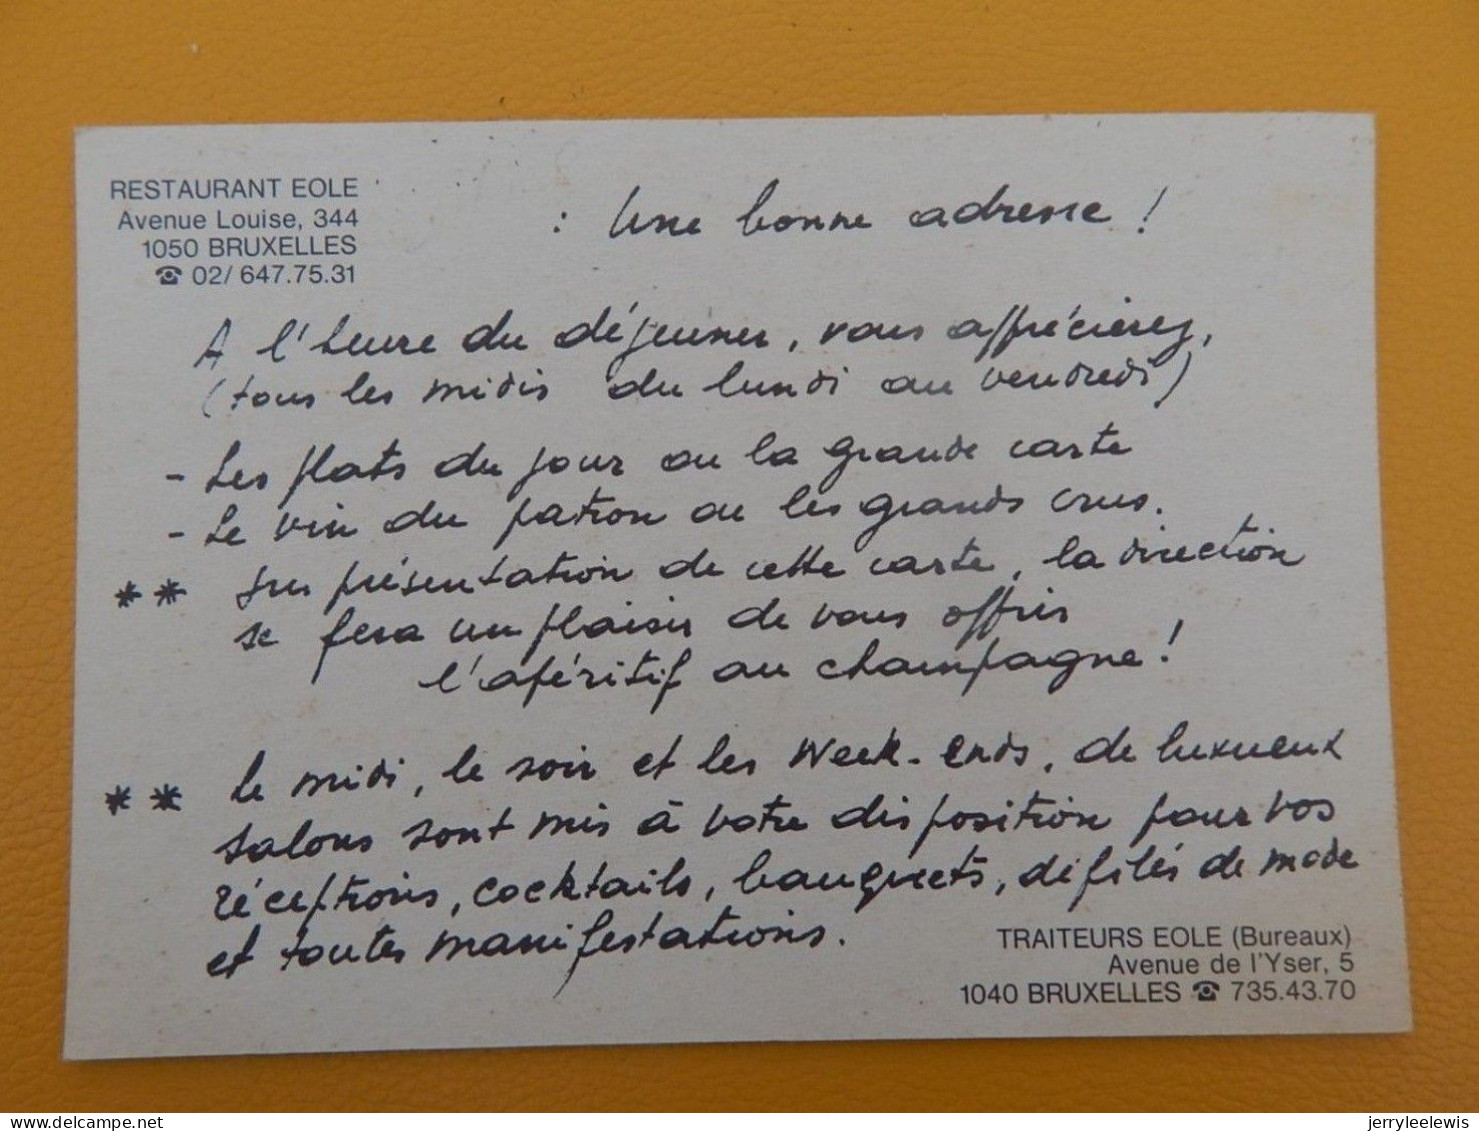 RESTAURANT EOLE
Avenue Louise, 344
1050 BRUXELLES
☎ 02/ 647.75.31
: Une bonne adresse !
A l'heure du déjeuner, vous apprécierez,
(tous les midis du lundi au vendredi)
- Les plats du jour ou la grande carte
- Le vin du patron ou les grands crus.
** Sur présentation de cette carte, la direction
se fera un plaisir de vous offrir
l'apéritif au champagne !
** Le midi, le soir et les Week-ends, de luxueux
salons sont mis à votre disposition pour vos
réceptions, cocktails, banquets, défilés de mode
et toutes manifestations.
TRAITEURS EOLE (Bureaux)
Avenue de l'Yser, 5
1040 BRUXELLES ☎ 735.43.70
www.delcampe.net
jerryleelewis